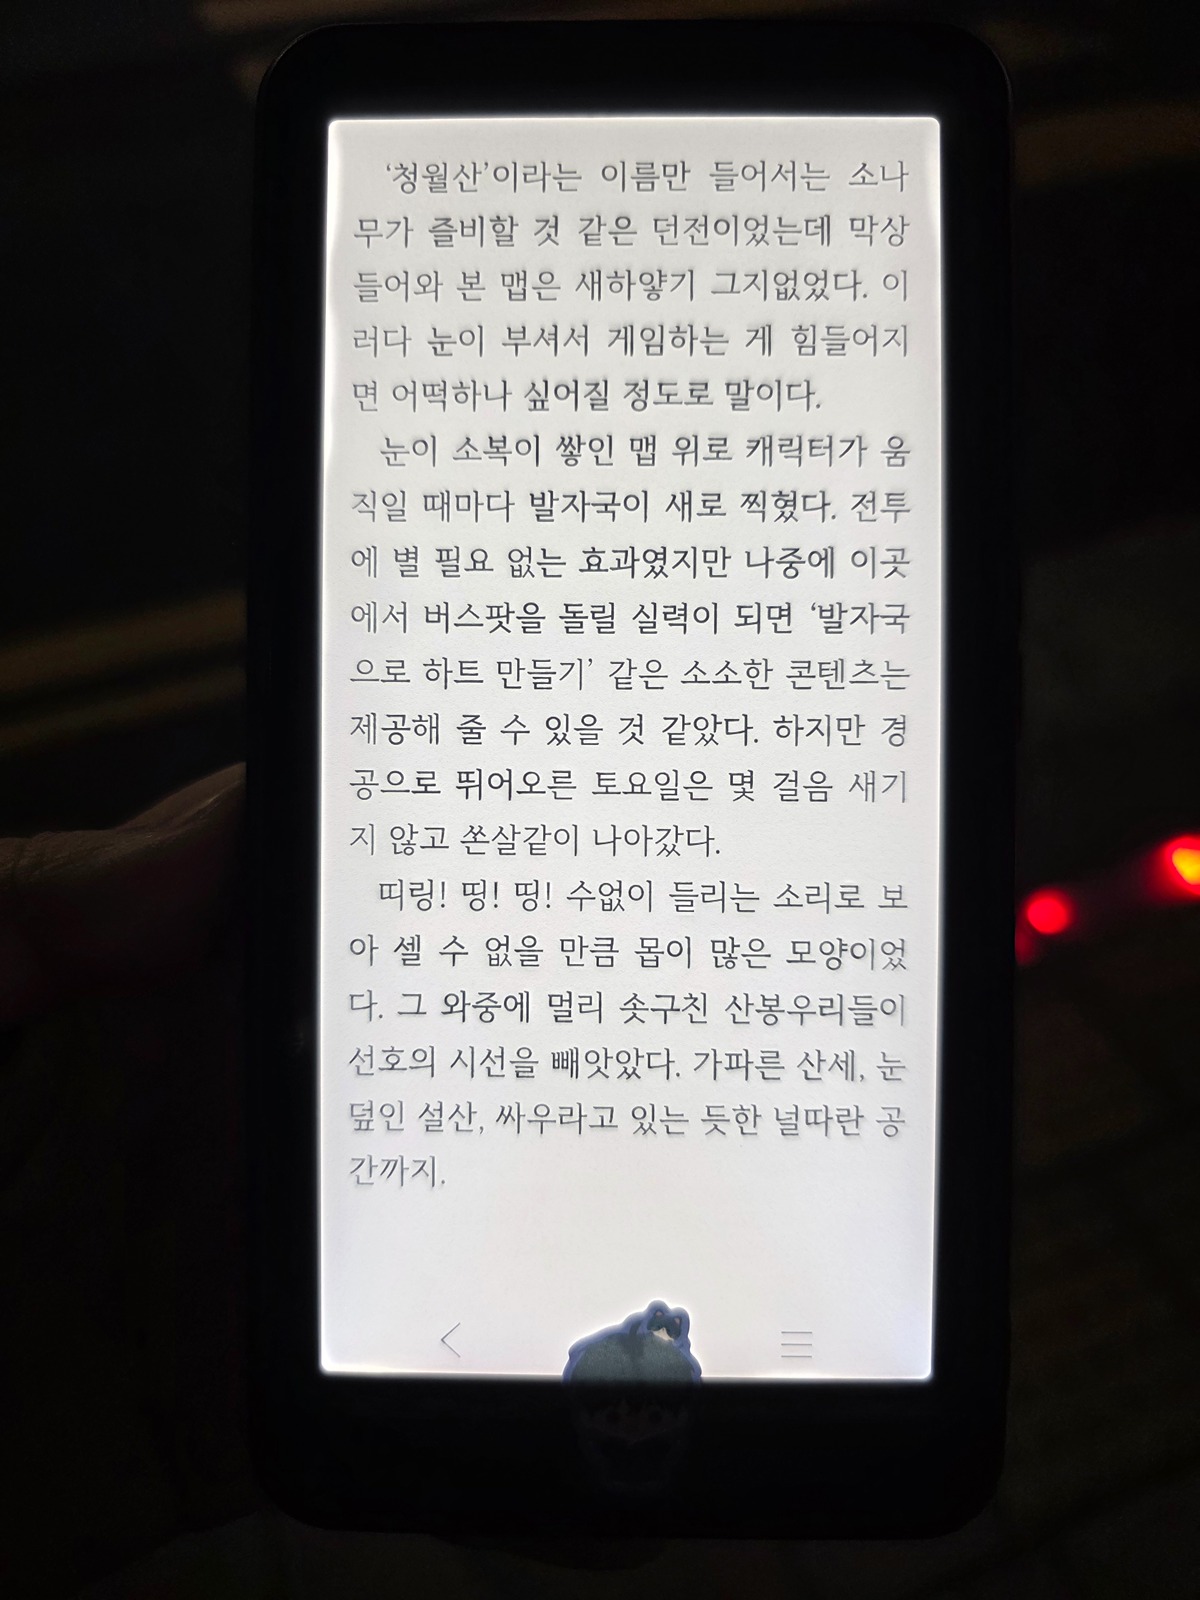 ‘청월산’이라는 이름만 들어서는 소나
무가 즐비할 것 같은 던전이었는데 막상
들어와 본 맵은 새하얗기 그지없었다. 이
러다 눈이 부셔서 게임하는 게 힘들어지
면 어떡하나 싶어질 정도로 말이다.
눈이 소복이 쌓인 맵 위로 캐릭터가 움
직일 때마다 발자국이 새로 찍혔다. 전투
에 별 필요 없는 효과였지만 나중에 이곳
에서 버스팟을 돌릴 실력이 되면 ‘발자국
으로 하트 만들기’ 같은 소소한 콘텐츠는
제공해 줄 수 있을 것 같았다. 하지만 경
공으로 뛰어오른 토요일은 몇 걸음 새기
지 않고 쏜살같이 나아갔다.
띠링! 띵! 띵! 수없이 들리는 소리로 보
아 셀 수 없을 만큼 몹이 많은 모양이었
다. 그 와중에 멀리 솟구친 산봉우리들이
선호의 시선을 빼앗았다. 가파른 산세, 눈
덮인 설산, 싸우라고 있는 듯한 널따란 공
간까지.